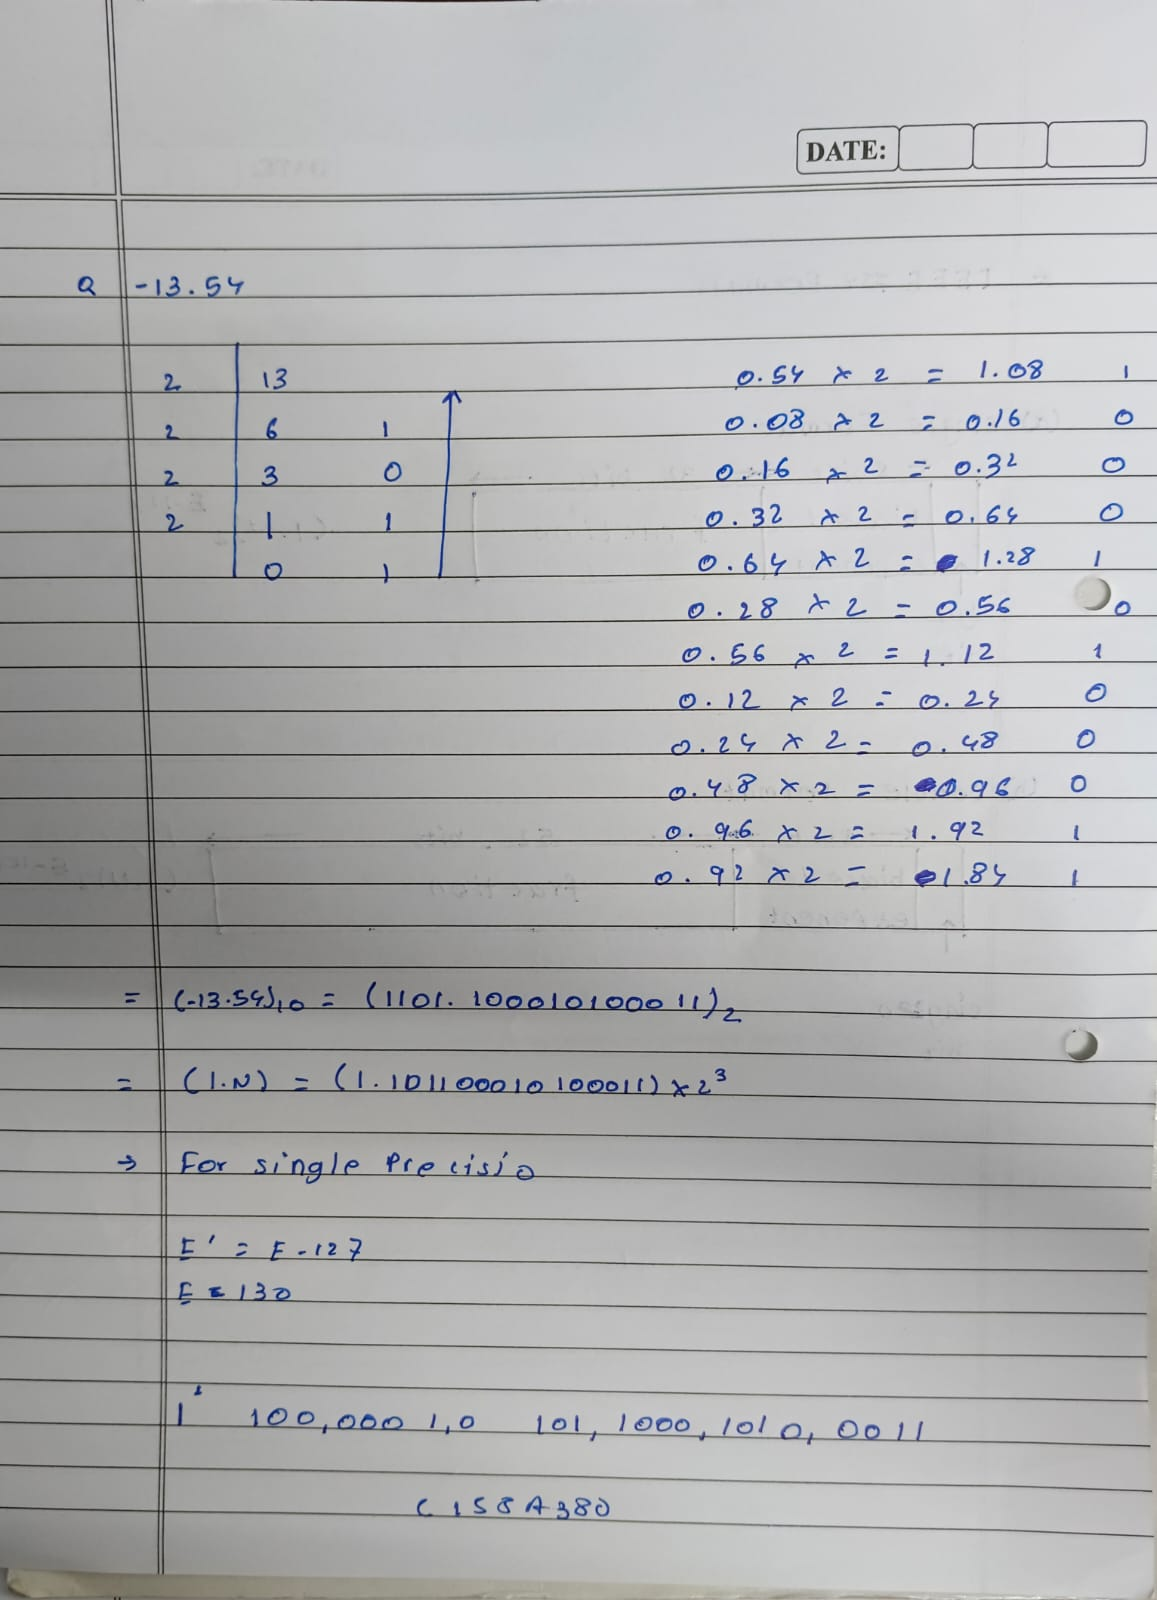 DATE:
Q -13.54
2 13
2 6 1
2 3 0
2 1 1
0 1
0.54 × 2 = 1.08 1
0.08 × 2 = 0.16 0
0.16 × 2 = 0.32 0
0.32 × 2 = 0.64 0
0.64 × 2 = 1.28 1
0.28 × 2 = 0.56 0
0.56 × 2 = 1.12 1
0.12 × 2 = 0.24 0
0.24 × 2 = 0.48 0
0.48 × 2 = 0.96 0
0.96 × 2 = 1.92 1
0.92 × 2 = 1.84 1
= (-13.54)10 = (1101.100010100011)2
= (1.N) = (1.101100010100011) × 2³
→ For single Precisio
E' = E-127
E = 130
1 100,0001,0 101,1000,1010,0011
C158A380